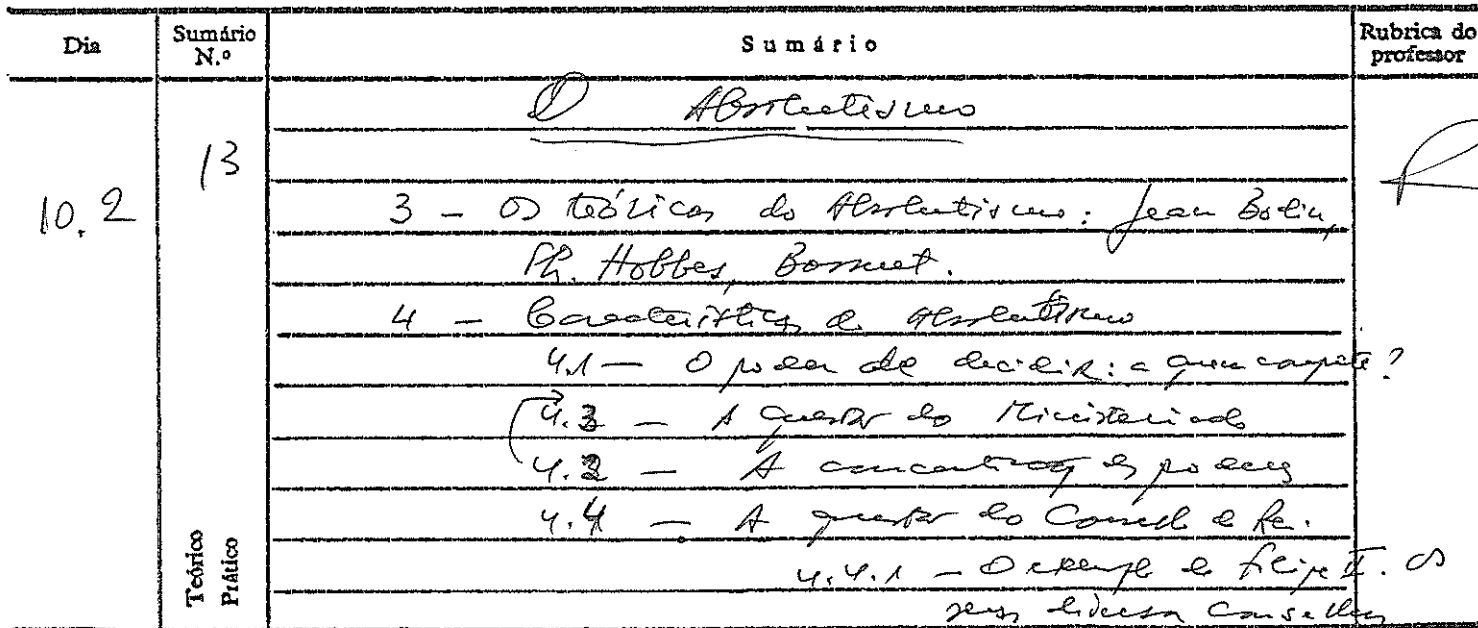 Dia Sumário N.º Sumário Rubrica do professor
O Absolutismo
10.2 13
3 - Os teóricos do Absolutismo: Jean Bodin,
Th. Hobbes, Bossuet.
4 - Características do Absolutismo
4.1 - O poder de decidir: a quem compete?
4.3 - A questão do Ministeriado
4.2 - A concentração de poderes
4.4 - A questão do Conselho do Rei.
4.4.1 - O exemplo de Filipe II. Os
seus diversos Conselhos
Teórico
Prático